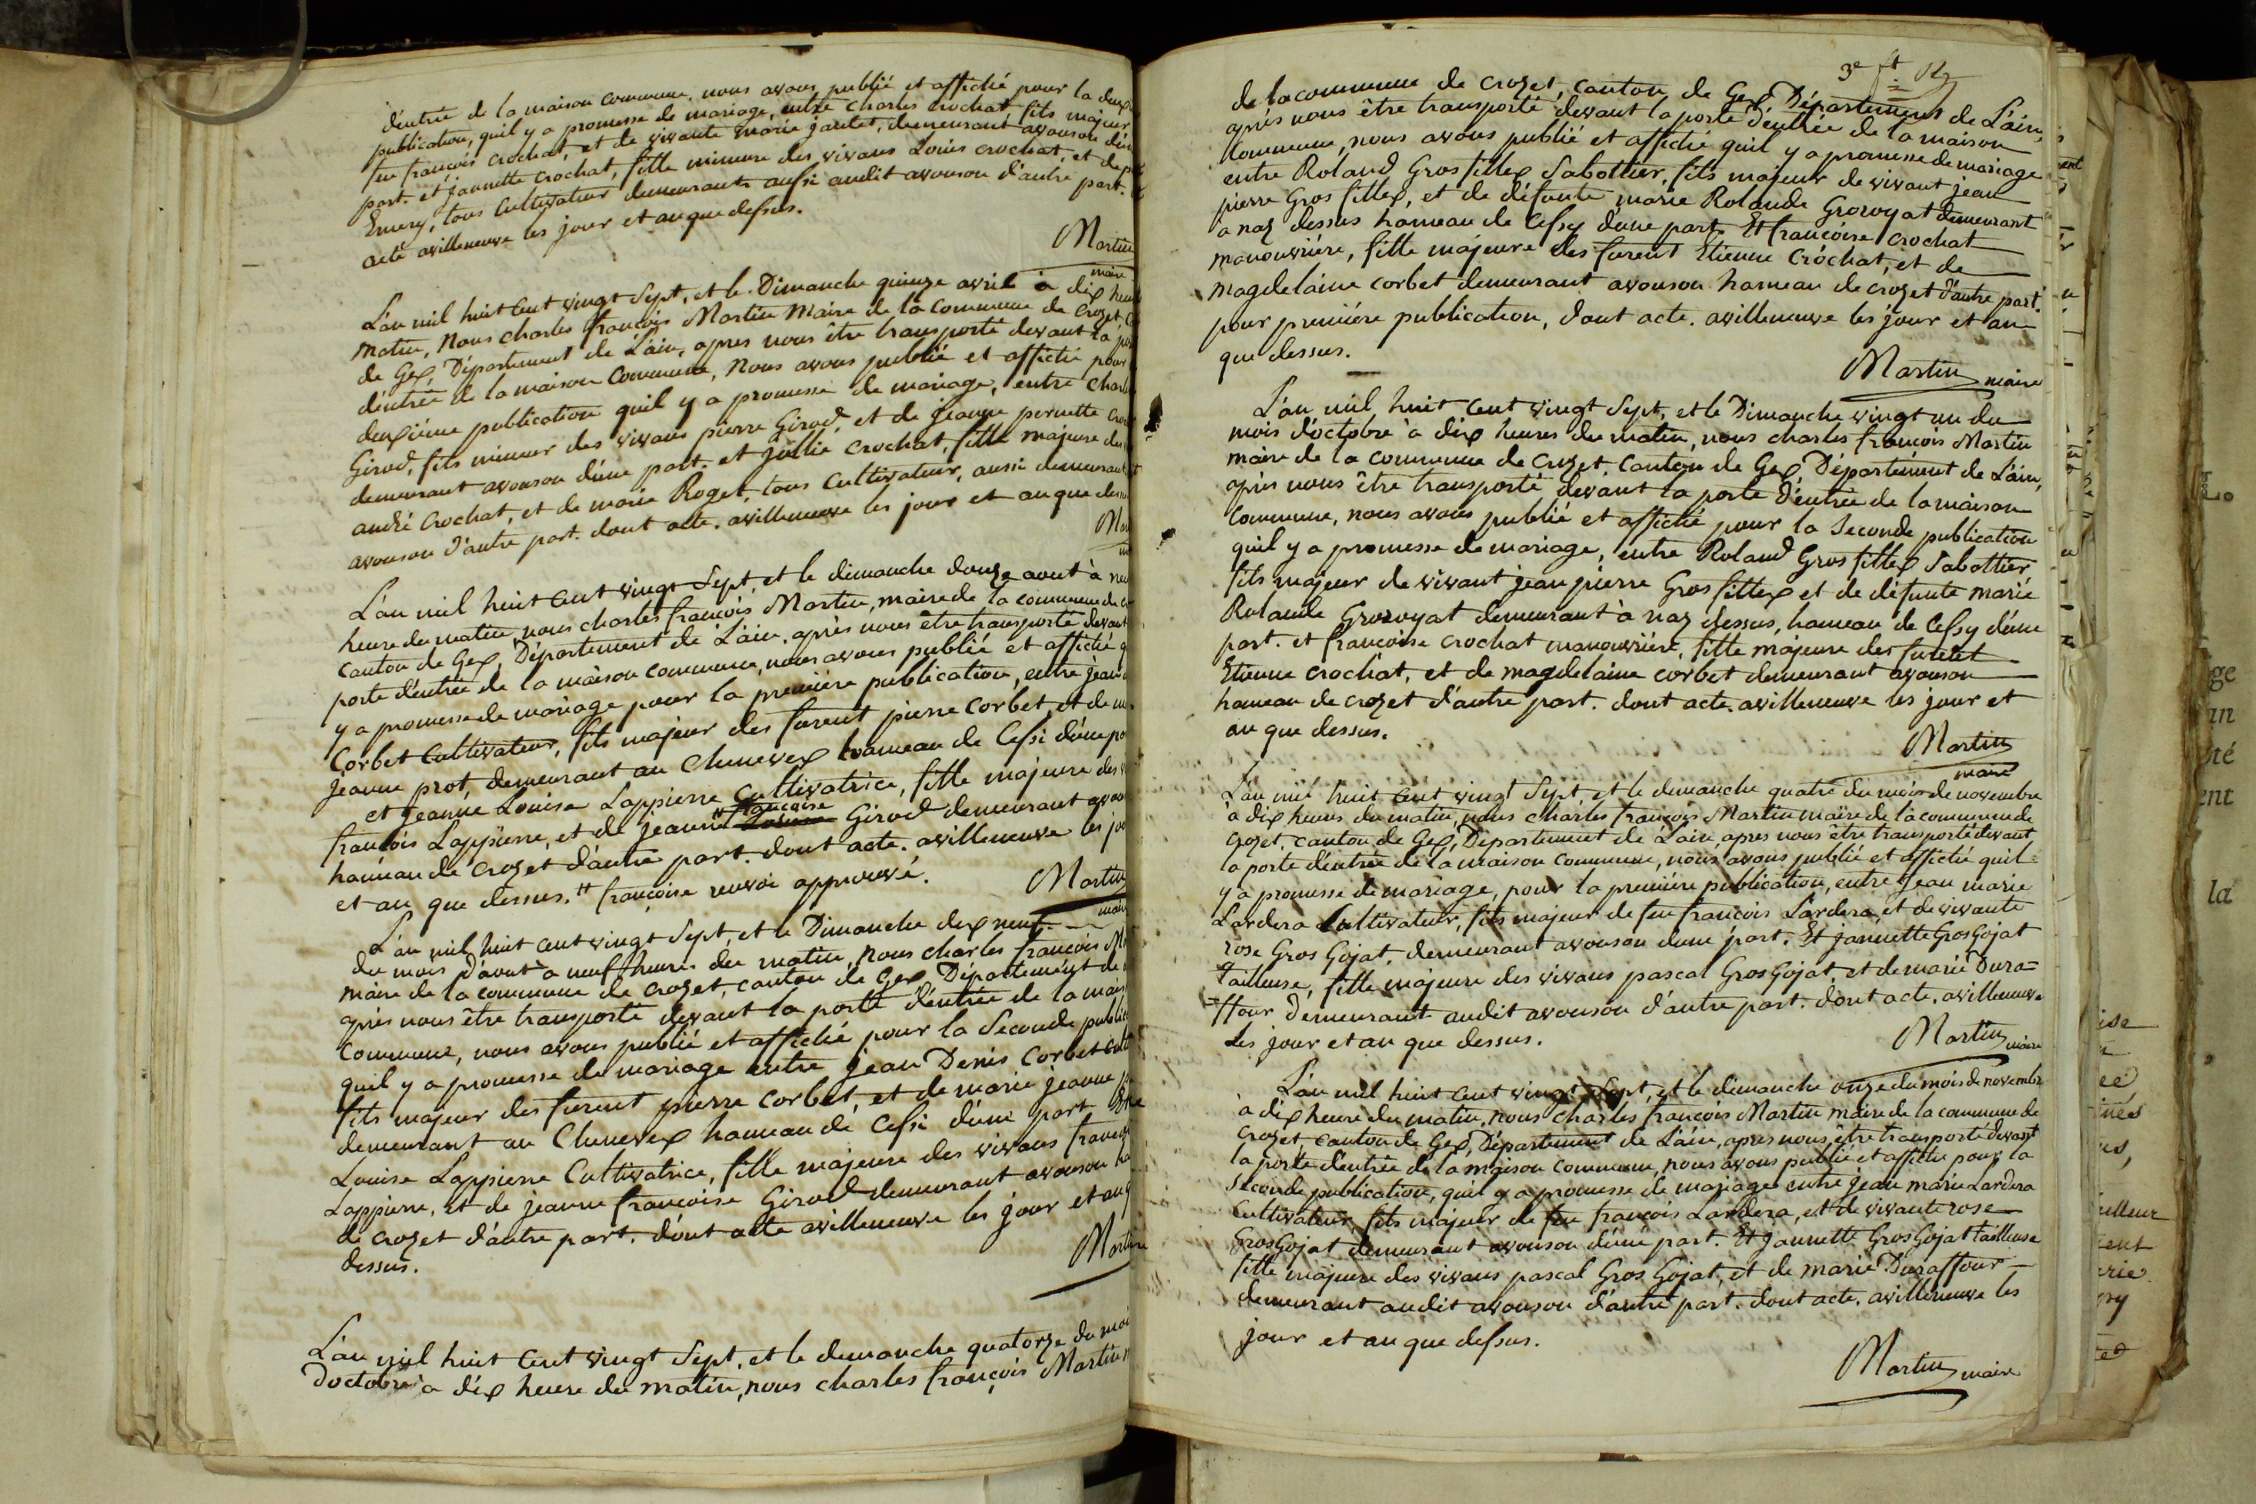 d'entrée de la maison commune, nous avons publié et affiché pour la
publication, quil y a promesse de mariage, entre Charles crochat fils majeur
feu françois crochat, et de vivante marie jantet, demeurant avouson
part. et jannette crochat, fille mineure des vivans Louis crochat, et de
Emery, tous Cultivateur demeurants aussi audit avouson d'autre part.
acte avilleneuve les jour et an que dessus.
Martin
maire
L'an mil huit cent vingt Sept, et le Dimanche quinze avril à dix heure
matin, Nous charles françois Martin Maire de la Commune de Crozet,
de Gex, Département de L'ain, apres nous être transporté devant la
d'entrée de la maison Commune, Nous avons publié et affiché pour
deuxième publication quil y a promesse de mariage, entre Charles
Girod, fils mineur des vivans pierre Girod, et de jeanne pernette
demeurant avouson d'une part. et jullie crochat, fille majeure des
andré crochat, et de marie Roget, tous Cultivateur, aussi demeurant
avouson d'autre part. dont acte. avilleneuve les jour et an que
L'an mil huit cent vingt Sept, et le dimanche douze aout à
heure du matin, nous charles françois Martin, maire de la commune de
canton de Gex, Département de L'ain. après nous être transporté devant
porte d'entrée de la maison commune, nous avons publié et affiché
y a promesse de mariage pour la première publication, entre jean
Corbet Cultivateur, fils majeur des furent pierre Corbet, et de
jeanne prot, demeurant au Chenevex hameau de Cessi d'une
et jeanne Louise Lappierre Cultivatrice, fille majeure des
françoise
françois Lappierre, et de jeanne Girod demeurant
hameau de Crozet d'autre part. dont acte. avilleneuve les
et an que dessus. " françoise renvoi approuvé.
Martin
L'an mil huit cent vingt Sept, et le Dimanche dix neuf
du mois d'aout à neuf heures du matin, Nous charles françois
maire de la commune de crozet, canton de Gex Département de
après nous être transporté devant la porte d'entrée de la
commune, nous avons publié et affiché pour la Seconde
quil y a promesse de mariage entre jean Denis Corbet
fils majeur des furent pierre Corbet, et de marie jeanne
demeurant au Chenevex hameau de Cessi d'une part
Louise Lappierre Cultivatrice, fille majeure des vivans
Lappierre, et de jeanne françoise Girod demeurant avouson
de crozet d'autre part. dont acte avilleneuve les jour et
dessus.
Martin
L'an mil huit cent vingt Sept, et le dimanche quatorze du
D'octobre à dix heure du matin, nous charles françois Martin
3e
de la commune de crozet, canton de Gex Département de L'ain,
après nous être transporté devant la porte d'entrée de la maison
Commune, nous avons publié et affiché quil y a promesse de mariage
entre Roland Grosfillex Sabottier, fils majeur de vivant jean
pierre Gros fillex, et de défunte marie Rolande Grozoyat demeurant
a naz dessus hameau de Cessy d'une part. Et françoise crochat
manouvrière, fille majeure des furent Etienne crochat, et de
magdelaine corbet demeurant avouson hameau de crozet d'autre part.
pour première publication, dont acte. avilleneuve les jour et an
que dessus.
Martin maire
L'an mil huit cent vingt Sept, et le Dimanche vingt un du
mois d'octobre à dix heures du matin, nous charles françois Martin
maire de la commune de crozet, canton de Gex, Département de L'ain,
après nous être transporté devant la porte d'entrée de la maison
commune, nous avons publié et affiché pour la Seconde publication
quil y a promesse de mariage, entre Roland Gros fillex Sabottier
fils majeur de vivant jean pierre Gros fillex et de défunte marie
Rolande Grozoyat demeurant à naz dessus, hameau de Cessy d'une
part. et françoise crochat manouvrière, fille majeure des furent
Etienne crochat, et de magdelaine corbet demeurant avouson
hameau de crozet d'autre part. dont acte. avilleneuve les jour et
an que dessus.
Martin
maire
L'an mil huit cent vingt Sept, et le dimanche quatre du mois de novembre
à dix heures du matin, nous charles françois Martin maire de la commune de
crozet, canton de Gex, Département de L'ain, apres nous être transporté devant
la porte d'entrée de la maison commune, nous avons publié et affiché quil
y a promesse de mariage, pour la première publication, entre jean marie
Lardera Cultivateur, fils majeur de feu françois Lardera, et de vivante
rose Gros Gojat, demeurant avouson d'une part. Et jannette Gros Gojat
Tailleuse, fille majeure des vivans pascal Gros Gojat, et de marie Dura=
ffour demeurant audit avouson d'autre part. dont acte. avilleneuve
Les jour et an que dessus.
Martin maire
L'an mil huit cent vingt Sept, et le dimanche onze du mois de novembre
à dix heure du matin, nous charles françois Martin maire de la commune de
crozet, canton de Gex, Département de L'ain, apres nous être transporté devant
la porte d'entrée de la maison commune, nous avons publié et affiché pour la
Seconde publication, quil y a promesse de mariage entre jean marie Lardera
cultivateur fils majeur de feu françois Lardera, et de vivante rose
Gros Gojat demeurant avouson d'une part. Et jannette Gros Gojat tailleuse
fille majeure des vivans pascal Gros Gojat, et de marie Duraffour
demeurant audit avouson d'autre part. dont acte. avilleneuve les
jour et an que dessus.
Martin maire